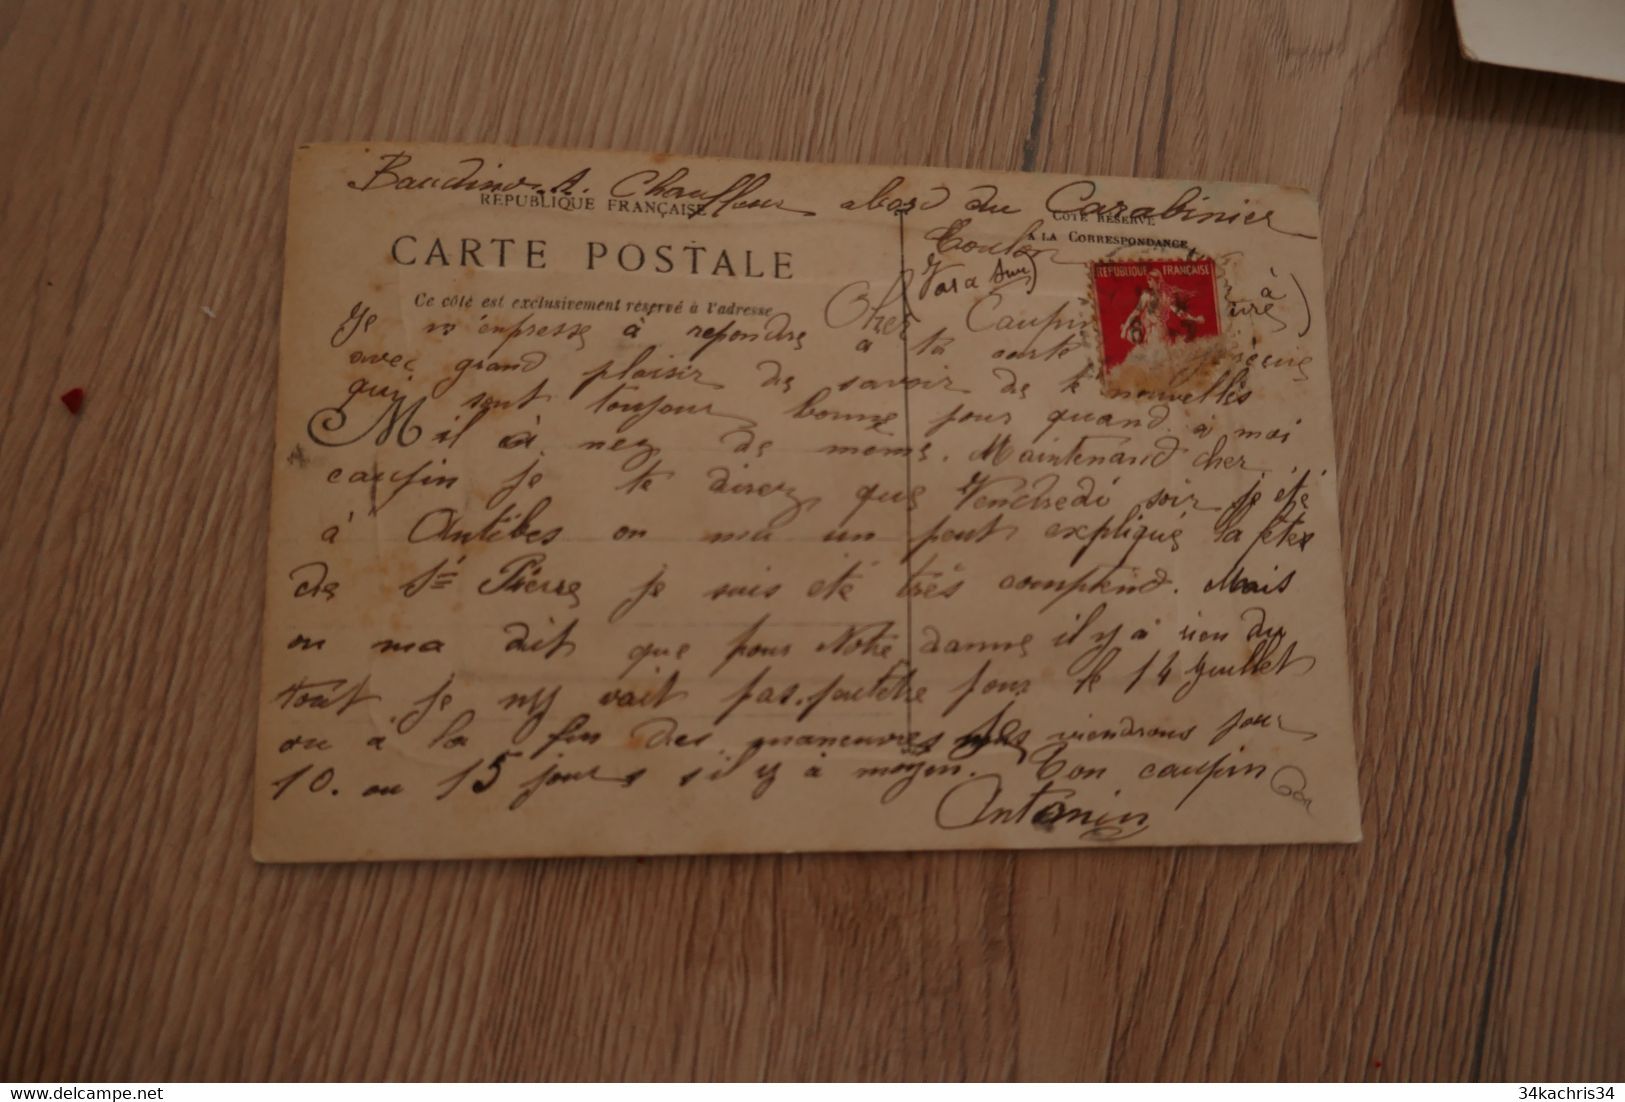 Baudino. A. Chauffeur abord du Carabinier
REPUBLIQUE FRANÇAISE
COTE RESERVE
A LA CORRESPONDANCE
Toulon
(Var)
CARTE POSTALE
Ce côté est exclusivement réservé à l'adresse
REPUBLIQUE FRANÇAISE
Cher Caupin
Je m'enpresse à repondre a ta carte
avec grand plaisir de savoir de te nouvelles
qui sont toujour bonne pour quand à moi
il en nez de même. Maintenand cher
caupin je te direz que Vendredi soir je eté
à Antibes on ma un peut expliqué la fête
de St Pierre je suis eté très comptend. Mais
on ma dit que pour Notre damme il y à rien du
tout je ny vait pas. peutêtre pour le 14 Juillet
ou à la fin des maneuvres je viendrons pour
10. ou 15 jours s'il y à moyen. Ton caupin
Antonin
34kachris34